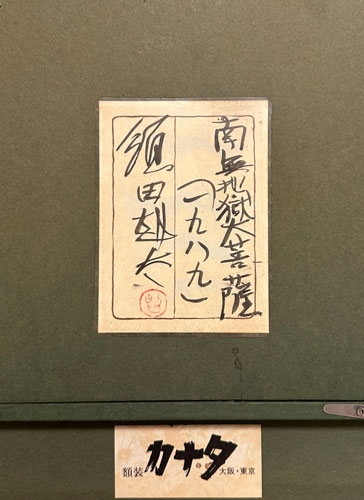 南無地獄大菩薩
(一九八九)
須田剋太
額装
カナタ
大阪・東京